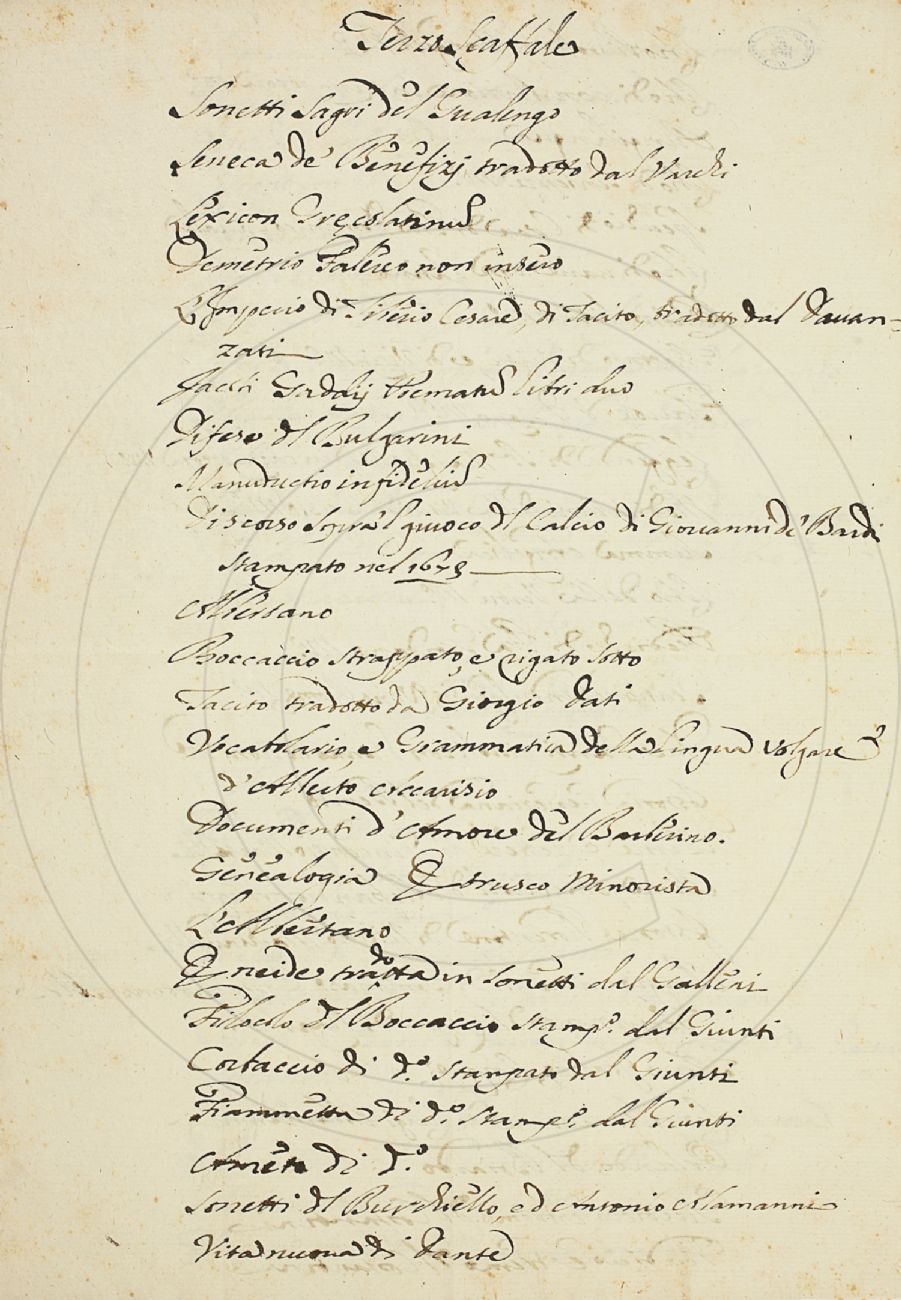 Terzo Scaffale
Sonetti Sagri del Gualengo
Seneca de' Benefizj tradotto dal Varchi
Lexicon Grecolatinum
Demetrio Falereo non intero
L'Imperio di Tiberio Cesare, di Tacito, tradotto dal Davan-
zati
Jacobi Gaddij Poematum libri duo
Difese del Bulgarini
Manuductio infidelium
Discorso sopra'l giuoco del Calcio di Giovanni de' Bardi
stampato nel 1673
Albertano
Boccaccio strappato, e rigato sotto
Tacito tradotto da Giorgio Dati
Vocabolario, e Grammatica della Lingua Volgare
d'Alberto Accarisio
Documenti d'Amore del Barberino.
Genealogia Etrusco Minorista
L'Albertano
Eneide tradotta in sonetti dal
Filocolo del Boccaccio stamp.o dal Giunti
Corbaccio di d.o stampato dal Giunti
Fiammetta di d.o stamp.o dal Giunti
Ameto di d.o
Sonetti del Burchiello, ed Antonio Alamanni
Vita nuova di Dante